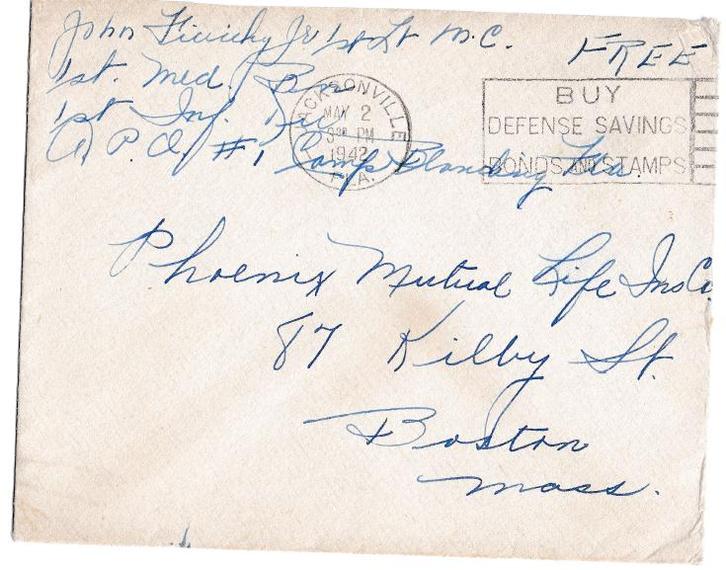 John Jr 1st Lt M.C.
FREE
1st. Med. Bn
1st Inf. Div
A P.O. #1 Camp Blanding Fla.
JACKSONVILLE
MAY 2
PM
1942
FLA.
BUY
DEFENSE SAVINGS
BONDS AND STAMPS
Phoenix Mutual Life Ins Co.
87 Kilby St.
Boston
Mass.